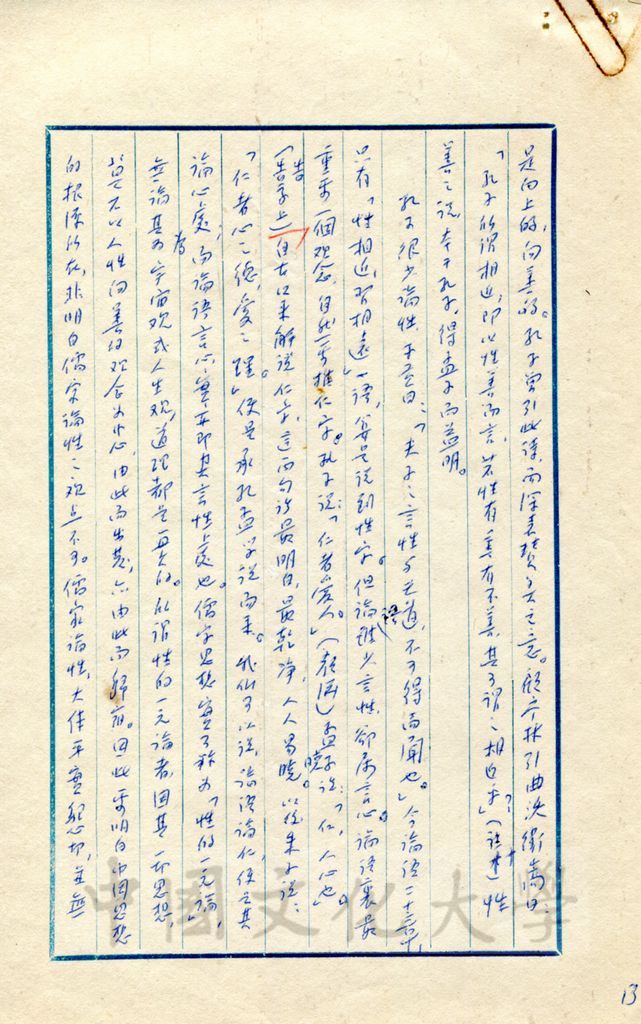 是向上的,向善的。孔子曾引此詩而深表贊美之意。顧亭林引曲沃衛嵩曰
「孔子所謂相近,即以性善而言,若性有善有不善,其可謂之相近乎?」性
善之說,本于孔子,得孟子而益明。
孔子很少論性,子貢曰:「夫子之言性與天道,不可得而聞也。」今論語二十篇中
只有「性相近,習相遠」一語,算是說到性字。但論語雖少言性,卻屢言心。論語裏最
重要一個观念,自然要推仁字。孔子說:「仁者愛人。」(顏淵)孟子說:「仁,人心也。」
(告子上)自古以來解說仁字,這兩句話最明白,最乾淨,人人易曉。以後朱子說:
「仁者心之德,愛之理。」便是承孔孟學說而來。我們可以說,論語論仁便是其
論心處;而論語言心,實亦即其言性處也。儒家思想實可稱為「性的一元論」,
無論其為宇宙观或人生观,道理都是一貫的。所謂性的一元論者,因其一切思想,
莫不以人性向善的观念為中心,由此而出發,亦由此而歸宿。因此要明白中国思想
的根源所在,非明白儒家論性之观点不可。儒家論性,大体平實懇切,並無
13
中國文化大學